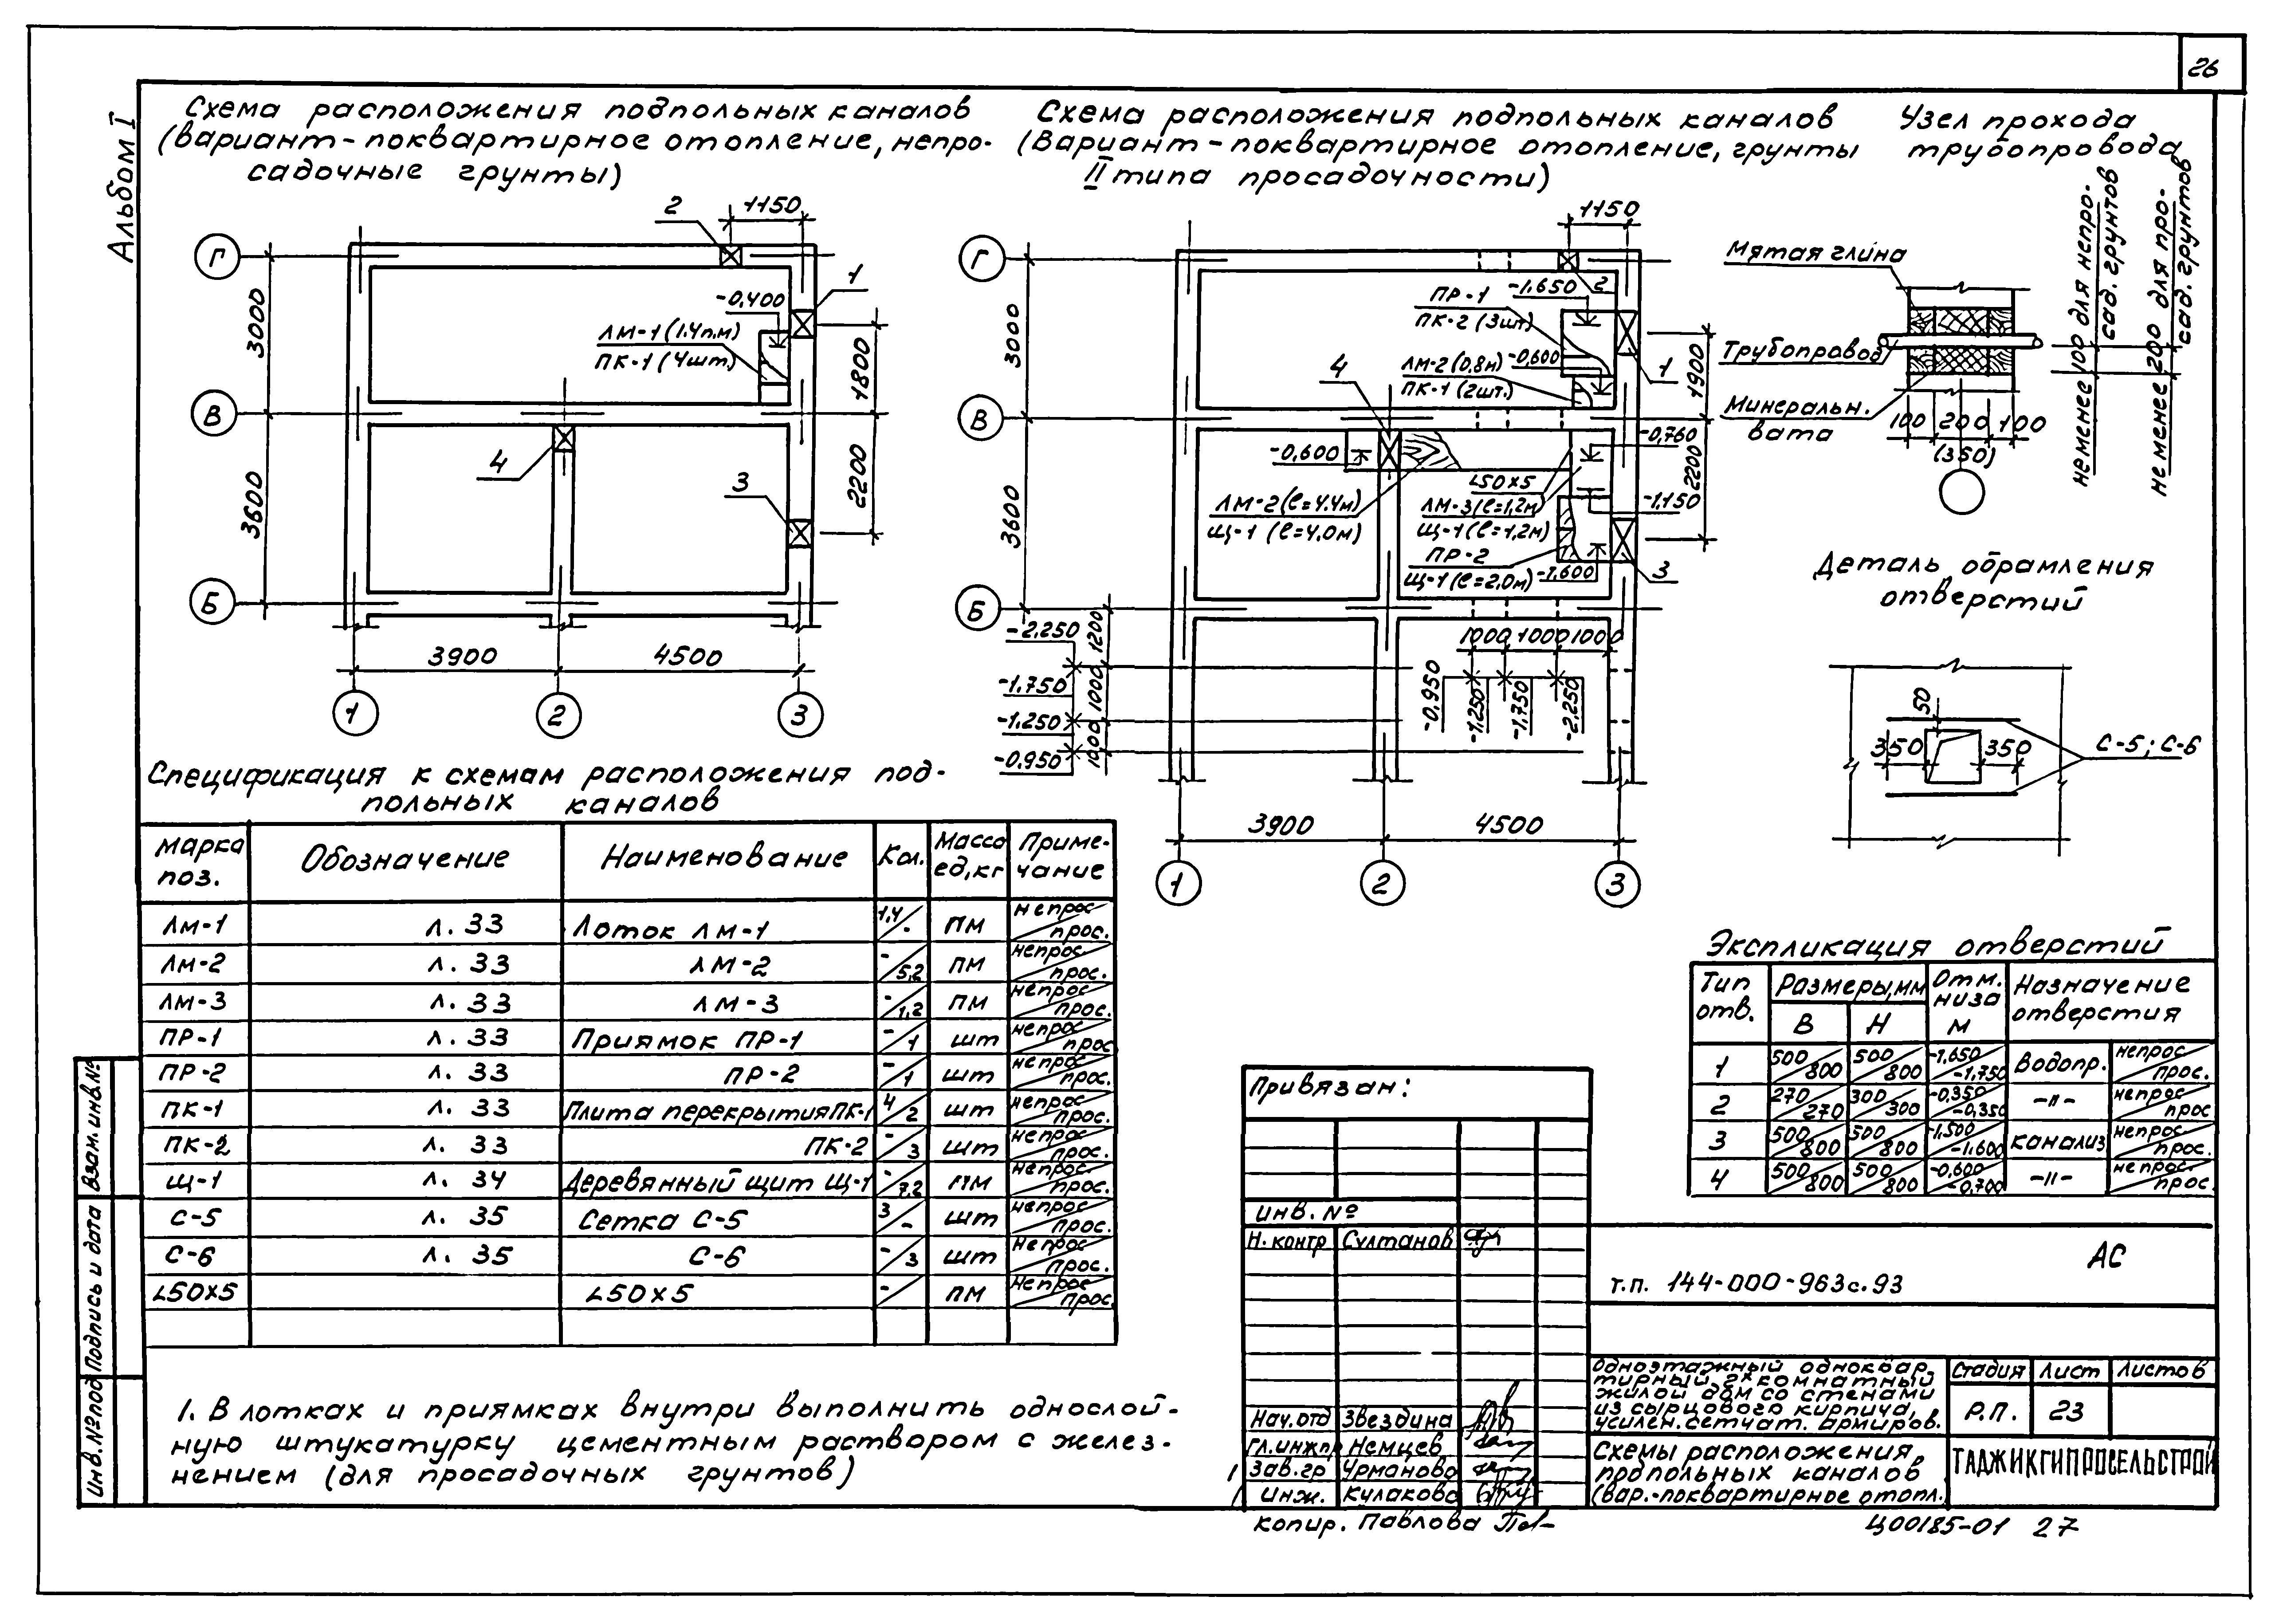 26
Альбом I
Схема расположения подпольных каналов
(вариант-поквартирное отопление, непро-
садочные грунты)
2
1150
Г
1
-0,400
ЛМ-1 (1.4п.м)
ПК-1 (4шт.)
3000
1800
В
4
3
3600
2200
Б
3900
4500
1
2
3
Схема расположения подпольных каналов
(Вариант-поквартирное отопление, грунты
II типа просадочности)
1150
Г
2
-1,650
ПР-1
ПК-2 (3шт)
3000
1900
-0,600
4
ЛМ-2 (0,8м)
ПК-1 (2шт.)
1
В
-0,760
-0,600
2200
L50x5
3600
ЛМ-2 (ℓ=4.4м)
Щ-1 (ℓ=4,0м)
ЛМ-3 (ℓ=1,2м)
-1,150
Щ-1 (ℓ=1,2м)
ПР-2
Щ-1 (ℓ=2,0м)
-1,600
3
Б
-2,250
1200
1000
1000
1000
-1.750
1000
-0,950
-1,250
-1,750
-2,250
-1.250
1000
-0.950
3900
4500
1
2
3
Узел прохода
трубопровода
Мятая глина
Трубопровод
Минеральн.
вата
100
200
100
(350)
не менее 100 для непро-
сад. грунтов
не менее 200 для про-
сад. грунтов
Деталь обрамления
отверстий
50
350
350
С-5; С-6
Спецификация к схемам расположения под-
польных каналов
Марка поз. Обозначение Наименование Кол. Масса ед,кг Приме-чание
Лм-1 л. 33 Лоток ЛМ-1 1,4/- ПМ непрос/прос.
Лм-2 л. 33 ЛМ-2 -/5,2 ПМ непрос/прос.
Лм-3 л. 33 ЛМ-3 -/1,2 ПМ непрос/прос.
ПР-1 л. 33 Приямок ПР-1 -/1 шт непрос/прос.
ПР-2 л. 33 ПР-2 -/1 шт непрос/прос.
ПК-1 л. 33 Плита перекрытия ПК-1 4/2 шт непрос/прос.
ПК-2 л. 33 ПК-2 -/3 шт непрос/прос.
Щ-1 л. 34 Деревянный щит Щ-1 -/7,2 ПМ непрос/прос.
С-5 л. 35 Сетка С-5 3/- шт непрос/прос.
С-6 л. 35 С-6 -/3 шт непрос/прос.
L50x5 L50x5 -/ ПМ непрос/прос.
Экспликация отверстий
Тип отв. Размеры,мм В Н Отм. низа м Назначение отверстия
1 500/800 500/800 -1,650/-1,750 водопр. непрос/прос.
2 270/270 300/300 -0,350/-0,350 -"- непрос/прос
3 500/800 500/800 -1,500/-1,600 канализ непрос/прос.
4 500/800 500/800 -0,600/-0,700 -"- непрос/прос.
1. В лотках и приямках внутри выполнить однослой-
ную штукатурку цементным раствором с желез-
нением (для просадочных грунтов)
Взам. инв.№
Подпись и дата
Инв.№ под
Привязан:
инв. №
Н.контр Султанов
Нач.отд Звездина
Гл.инжпр Немцев
Зав.гр Урманова
инж. Кулакова
АС
т.п. 144-000-963с.93
Одноэтажный одноквар
тирный 2х комнатный
жилой дом со стенами
из сырцового кирпича,
усилен.сетчат. армиров.
Стадия Лист Листов
Р.П. 23
Схемы расположения
подпольных каналов
(вар.-поквартирное отопл.
ТАДЖИКГИПРОСЕЛЬСТРОЙ
копир. Павлова
Ц00185-01 27